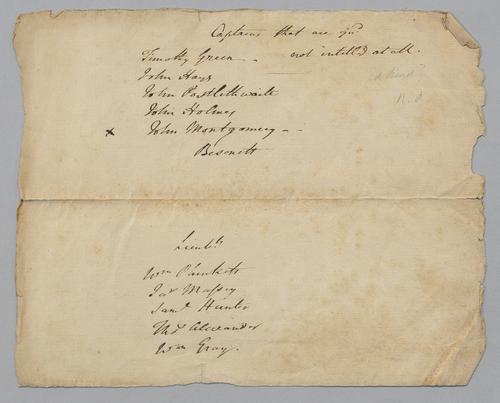 Captains that are
Timothy Green - not intitled at all.
John Hays
John Postlethwaite
John Holmes
x John Montgomery - -
Lieuts
Wm Plunkett
Jas Massey
Saml Hunter
Alexander
Wm Gray.